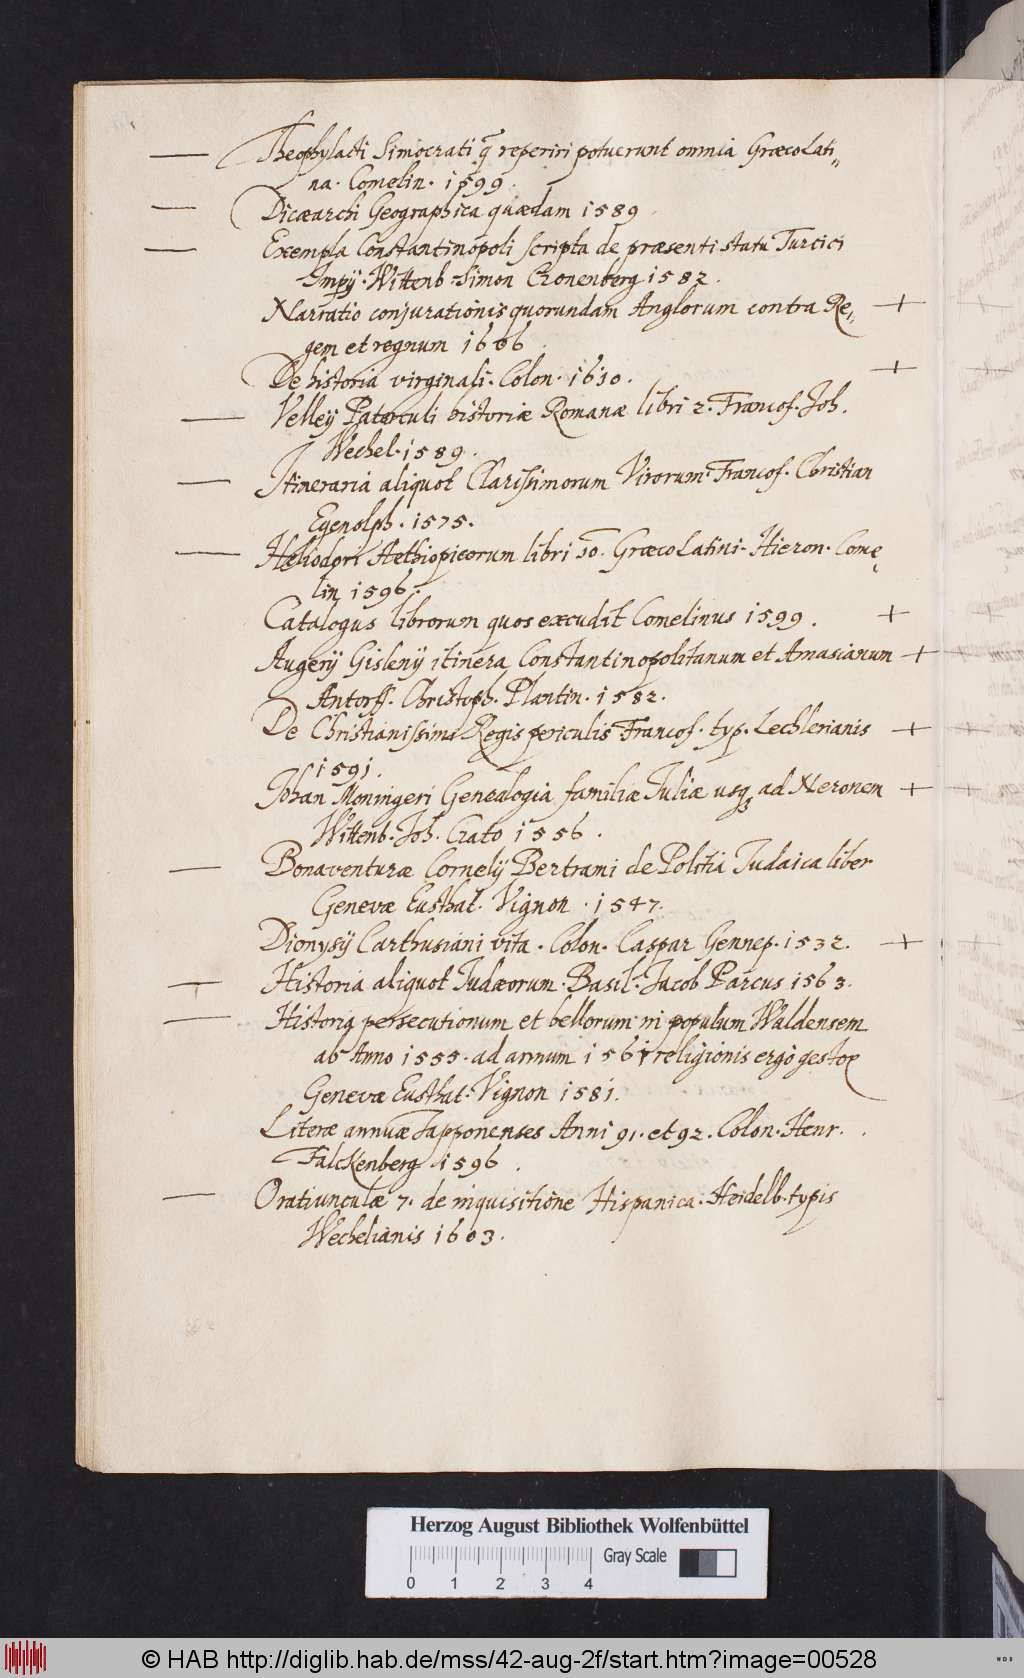 Theophylacti Simocrati q̃ reperiri potuerunt omnia Græcolati„
na. Comelin. 1599.
Dicæarchi Geographica quædam 1589.
Exempla Constantinopoli scripta de præsenti statu Turcici
Impij. Wittenb. Simon Cronenberg 1582.
Narratio conjurationis quorundam Anglorum contra Re„
gem et regnum 1606.
De historia virginali. Colon. 1610.
Velleij Paterculi historiæ Romanæ libri 2. Francof. Joh.
Wechel. 1589.
Itineraria aliquot Clarissimorum Virorum. Francof. Christian
Egenolph. 1575.
Heliodori Aethiopicorum libri 10. Græco Latini. Hieron. Come
lin 1596.
Catalogus librorum quos excudit Comelinus 1599.
Augerij Gislenij itinera Constantinopolitanum et Amasianum
Antorff. Christoph. Plantin. 1582.
De Christianissimi Regis periculis Francof. typ. Lechlerianis
1591.
Johan Moningeri Genealogia familiæ Juliæ usq3 ad Neronem
Wittenb. Joh. Crato 1556.
Bonaventuræ Cornelij Bertrami de Politia Judaica liber
Genevæ Eusthat. Vignon. 1547.
Dionysij Carthusiani vita. Colon. Caspar Gennep. 1532.
Historia aliquot Judæorum. Basil. Jacob Parcus 1563.
Historia persecutionum et bellorum in populum Waldensem
ab Anno 1555. ad annum 1561 religionis ergò gestoꝝ
Genevæ Eusthat. Vignon 1581.
Literæ annuæ Japponenses Anni 91. et 92. Colon. Henr.
Falckenberg 1596.
Oratiunculæ 7. de inquisitione Hispanica. Heidelb. typis
Wechelianis 1603.
Herzog August Bibliothek Wolfenbüttel
Gray Scale
0 1 2 3 4
© HAB http://diglib.hab.de/mss/42-aug-2f/start.htm?image=00528